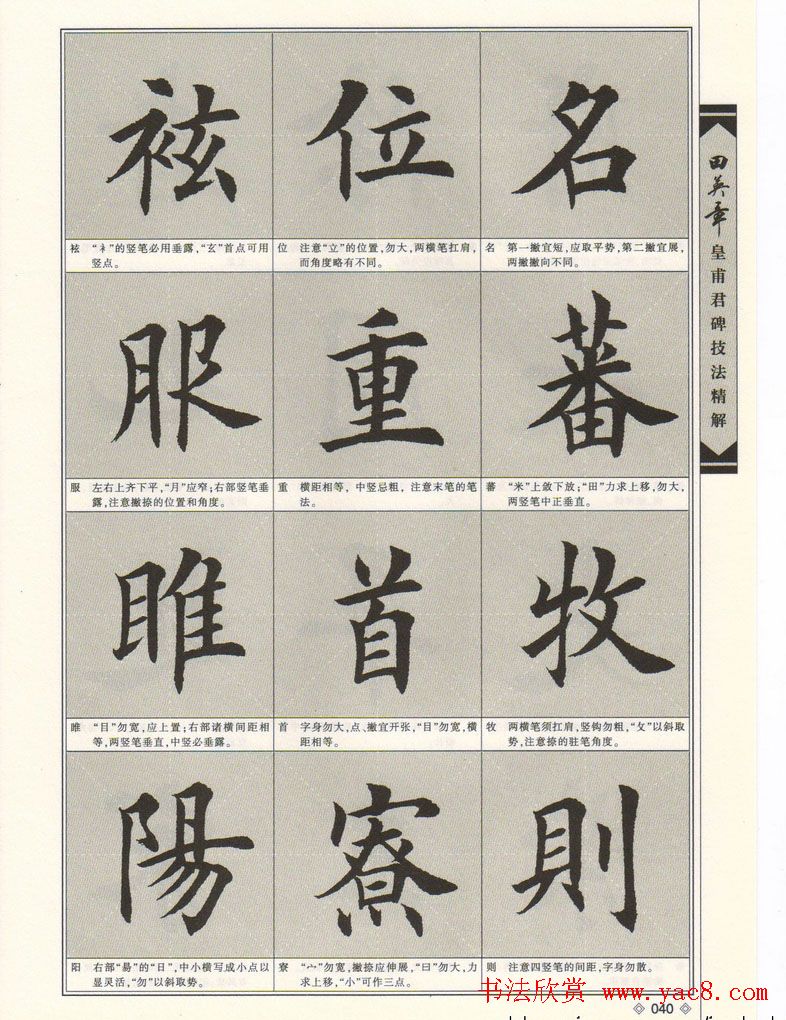 田英章
皇甫君碑技法精解
名
名 第一撇宜短，应取平势，第二撇宜展，
两撇撇向不同。
蕃
蕃 “米”上敛下放；“田”力求上移，勿大，
两竖笔中正垂直。
牧
牧 两横笔须扛肩，竖钩勿粗，“攵”以斜取
势，注意捺的驻笔角度。
則
则 注意四竖笔的间距，字身勿散。
位
位 注意“立”的位置，勿大，两横笔扛肩，
而角度略有不同。
重
重 横距相等，中竖忌粗，注意末笔的笔
法。
首
首 字身勿大，点、撇宜开张，“目”勿宽，横
距相等。
寮
寮 “宀”勿宽，撇捺应伸展，“曰”勿大，力
求上移，“小”可作三点。
袨
袨 “衤”的竖笔必用垂露，“玄”首点可用
竖点。
服
服 左右上齐下平，“月”应窄；右部竖笔垂
露，注意撇捺的位置和角度。
睢
睢 “目”勿宽，应上置；右部诸横间距相
等，两竖笔垂直，中竖必垂露。
陽
阳 右部“昜”的“日”，中小横写成小点以
显灵活，“勿”以斜取势。
书法欣赏 www.yac8.com
040